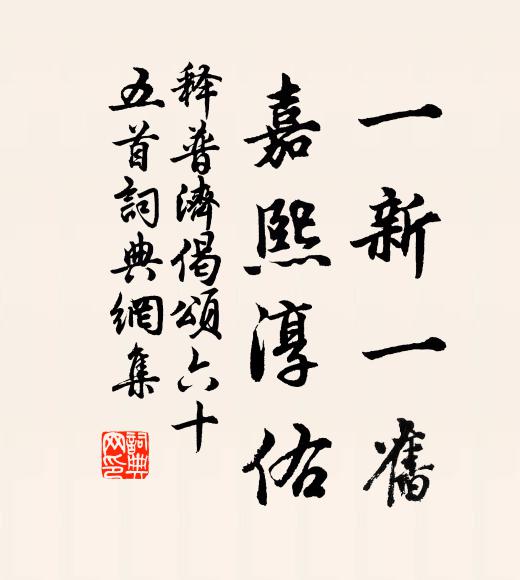 一新一舊
嘉熙淳佑
释普濟偈頌六十
五首詞典網集
詞典網印